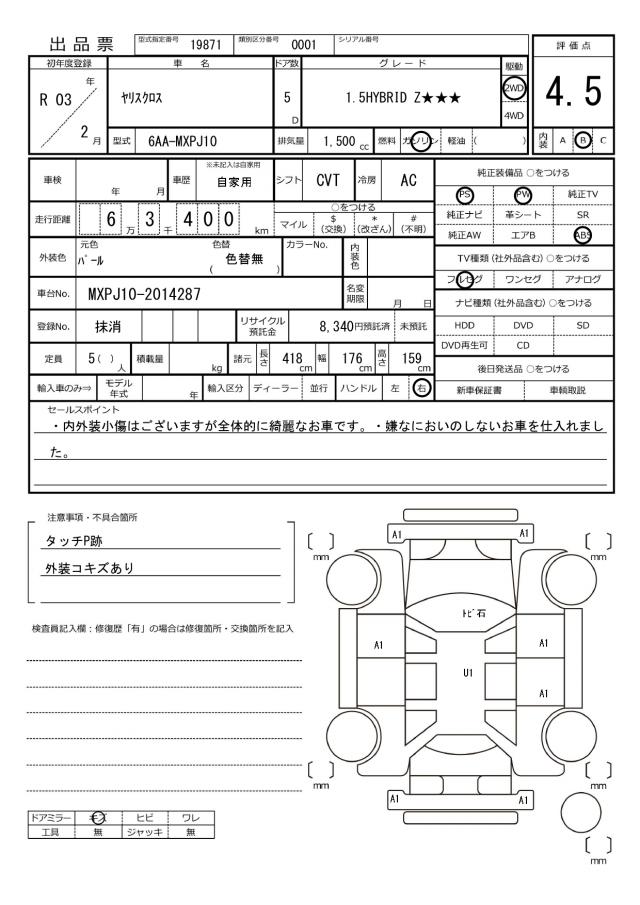 出品票 型式指定番号 19871 類別区分番号 0001 シリアル番号
評価点
4.5
初年度登録 車名 ドア数 グレード 駆動
R 03 年 2 月
ヤリスクロス 5 D 1.5HYBRID Z★★★ 2WD
4WD
型式 6AA-MXPJ10 排気量 1,500 cc 燃料 ガソリン 軽油 ( )
内装 A B C
車検 年 月 車歴 ※未記入は自家用 自家用 シフト CVT 冷房 AC
走行距離 6 万 3 千 4 0 0 km
○をつける
マイル $(交換) *(改ざん) #(不明)
外装色 元色 パール 色替 ( 色替無 ) カラーNo. 内装色
車台No. MXPJ10-2014287 名変期限 月 日
登録No. 抹消 リサイクル預託金 8,340円預託済 未預託
定員 5( )人 積載量 kg 諸元 長さ 418 cm 幅 176 cm 高さ 159 cm
輸入車のみ⇒ モデル年式 年 輸入区分 ディーラー 並行 ハンドル 左 右
純正装備品 ○をつける
PS PW 純正TV
純正ナビ 革シート SR
純正AW エアB ABS
TV種類(社外品含む)○をつける
フルセグ ワンセグ アナログ
ナビ種類(社外品含む)○をつける
HDD DVD SD
DVD再生可 CD
後日発送品 ○をつける
新車保証書 車輌取説
セールスポイント
・内外装小傷はございますが全体的に綺麗なお車です。・嫌なにおいのしないお車を仕入れまし
た。
注意事項・不具合箇所
タッチP跡
外装コキズあり
検査員記入欄：修復歴「有」の場合は修復箇所・交換箇所を記入
ドアミラー キズ ヒビ ワレ
工具 無 ジャッキ 無
A1 A1
[ ] mm [ ] mm
トビ石
A1 A1
U1
A1
[ ] mm [ ] mm
A1 A1
[ ] mm